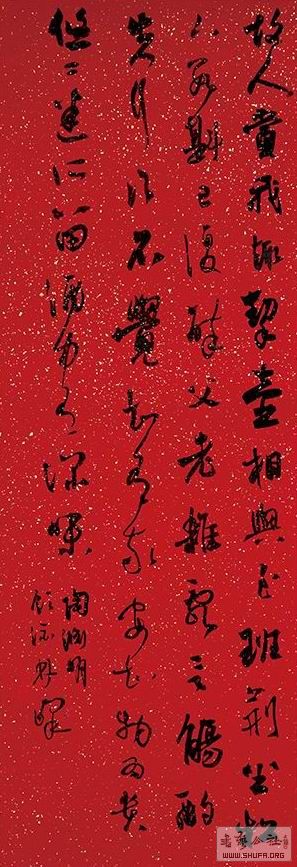 故人賞我趣挈壺相與至班荊坐松
下數斟已復醉父老雜亂言觴酌
失行次不覺知有我安知物為貴
悠〻迷所留酒中有深味
陶淵明
書法公社
WWW.SHUFA.ORG